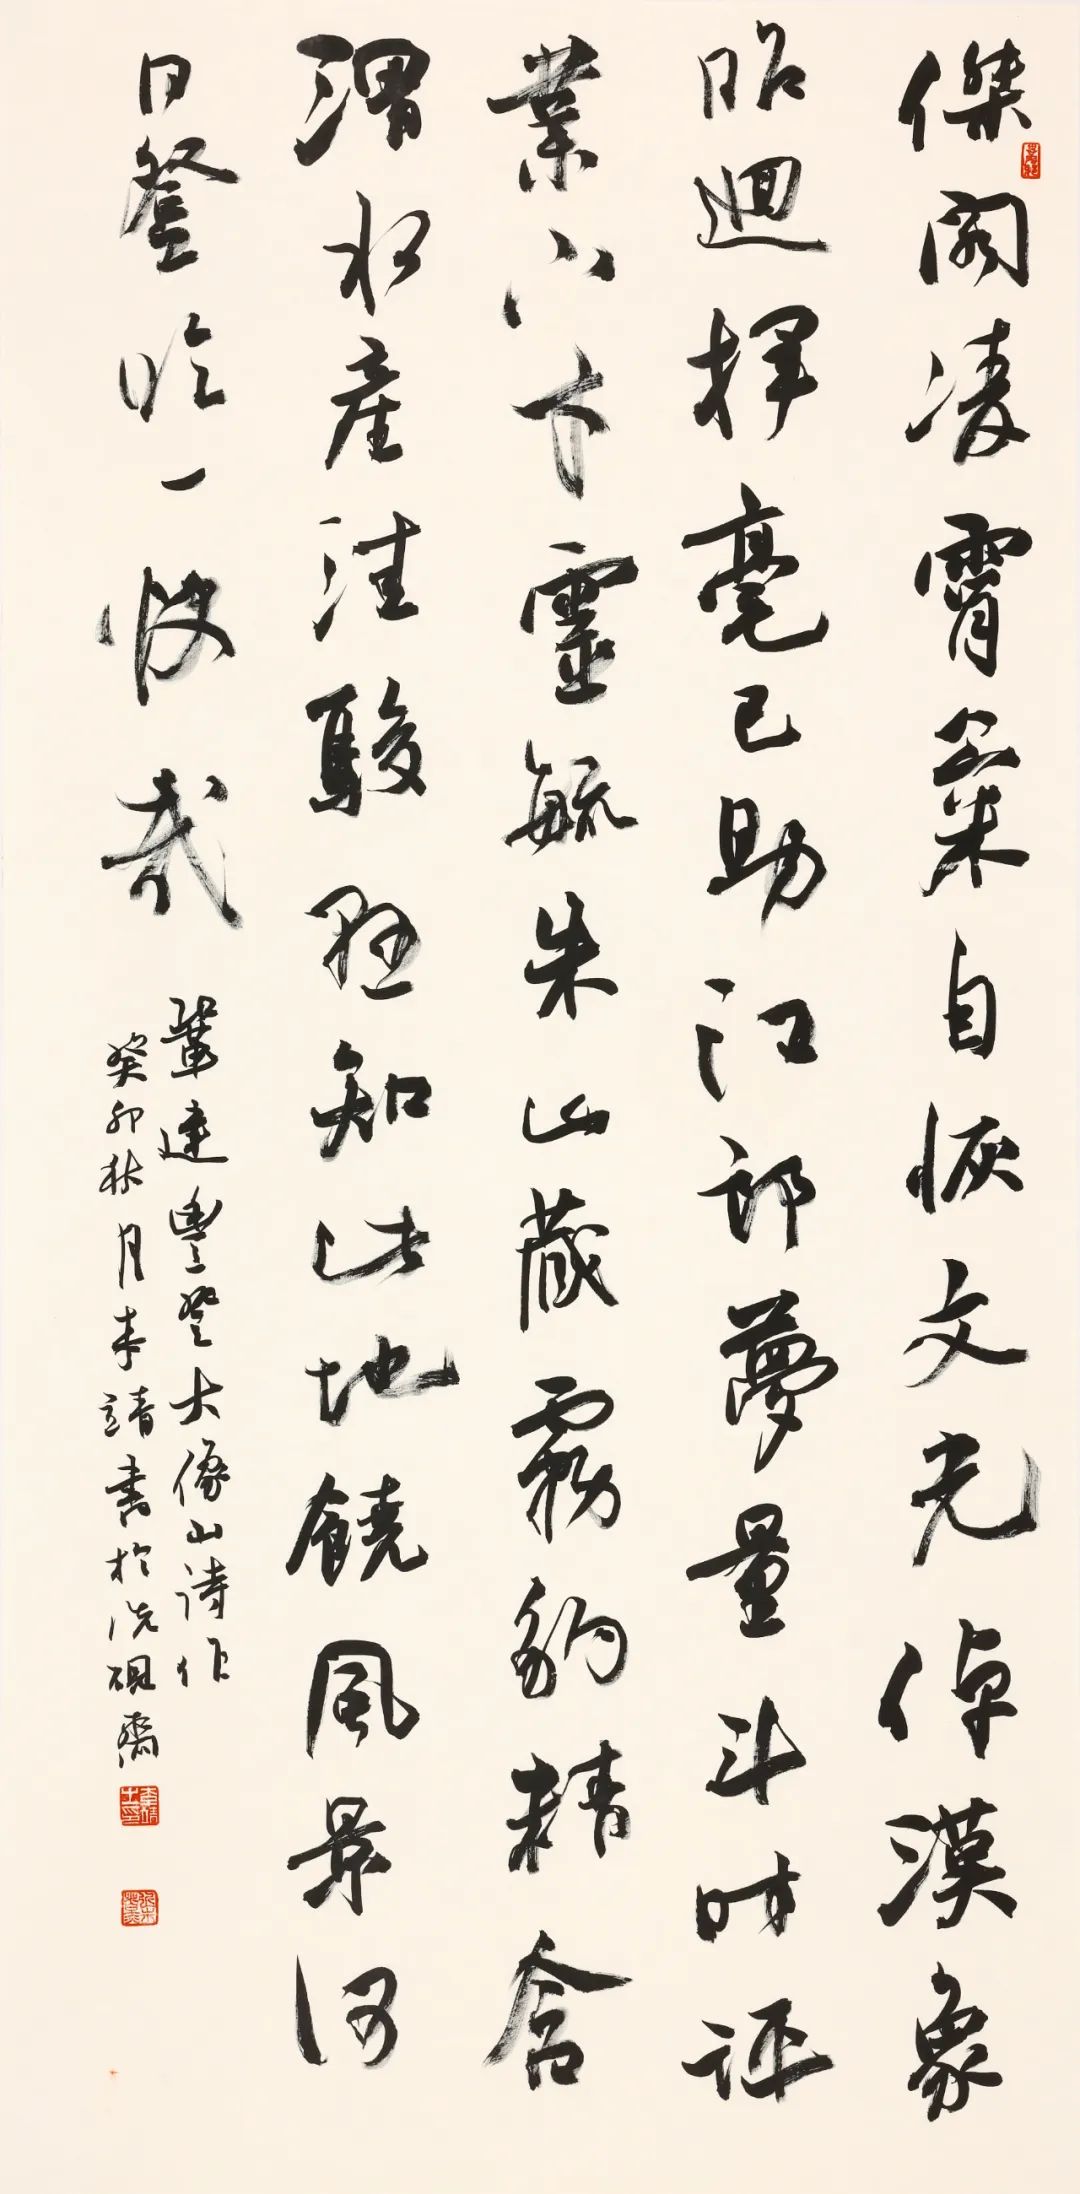 傑閣凌霄氣自恢文光倬漢象
昭迴揮毫已助江郎夢量斗時評
業八才靈毓朱山藏霧豹精含
渭水產洼駿懸知此地饒風景何
日登臨一快哉
鞏建豐登大像山詩作
癸卯秋月李靖書於洗硯齋